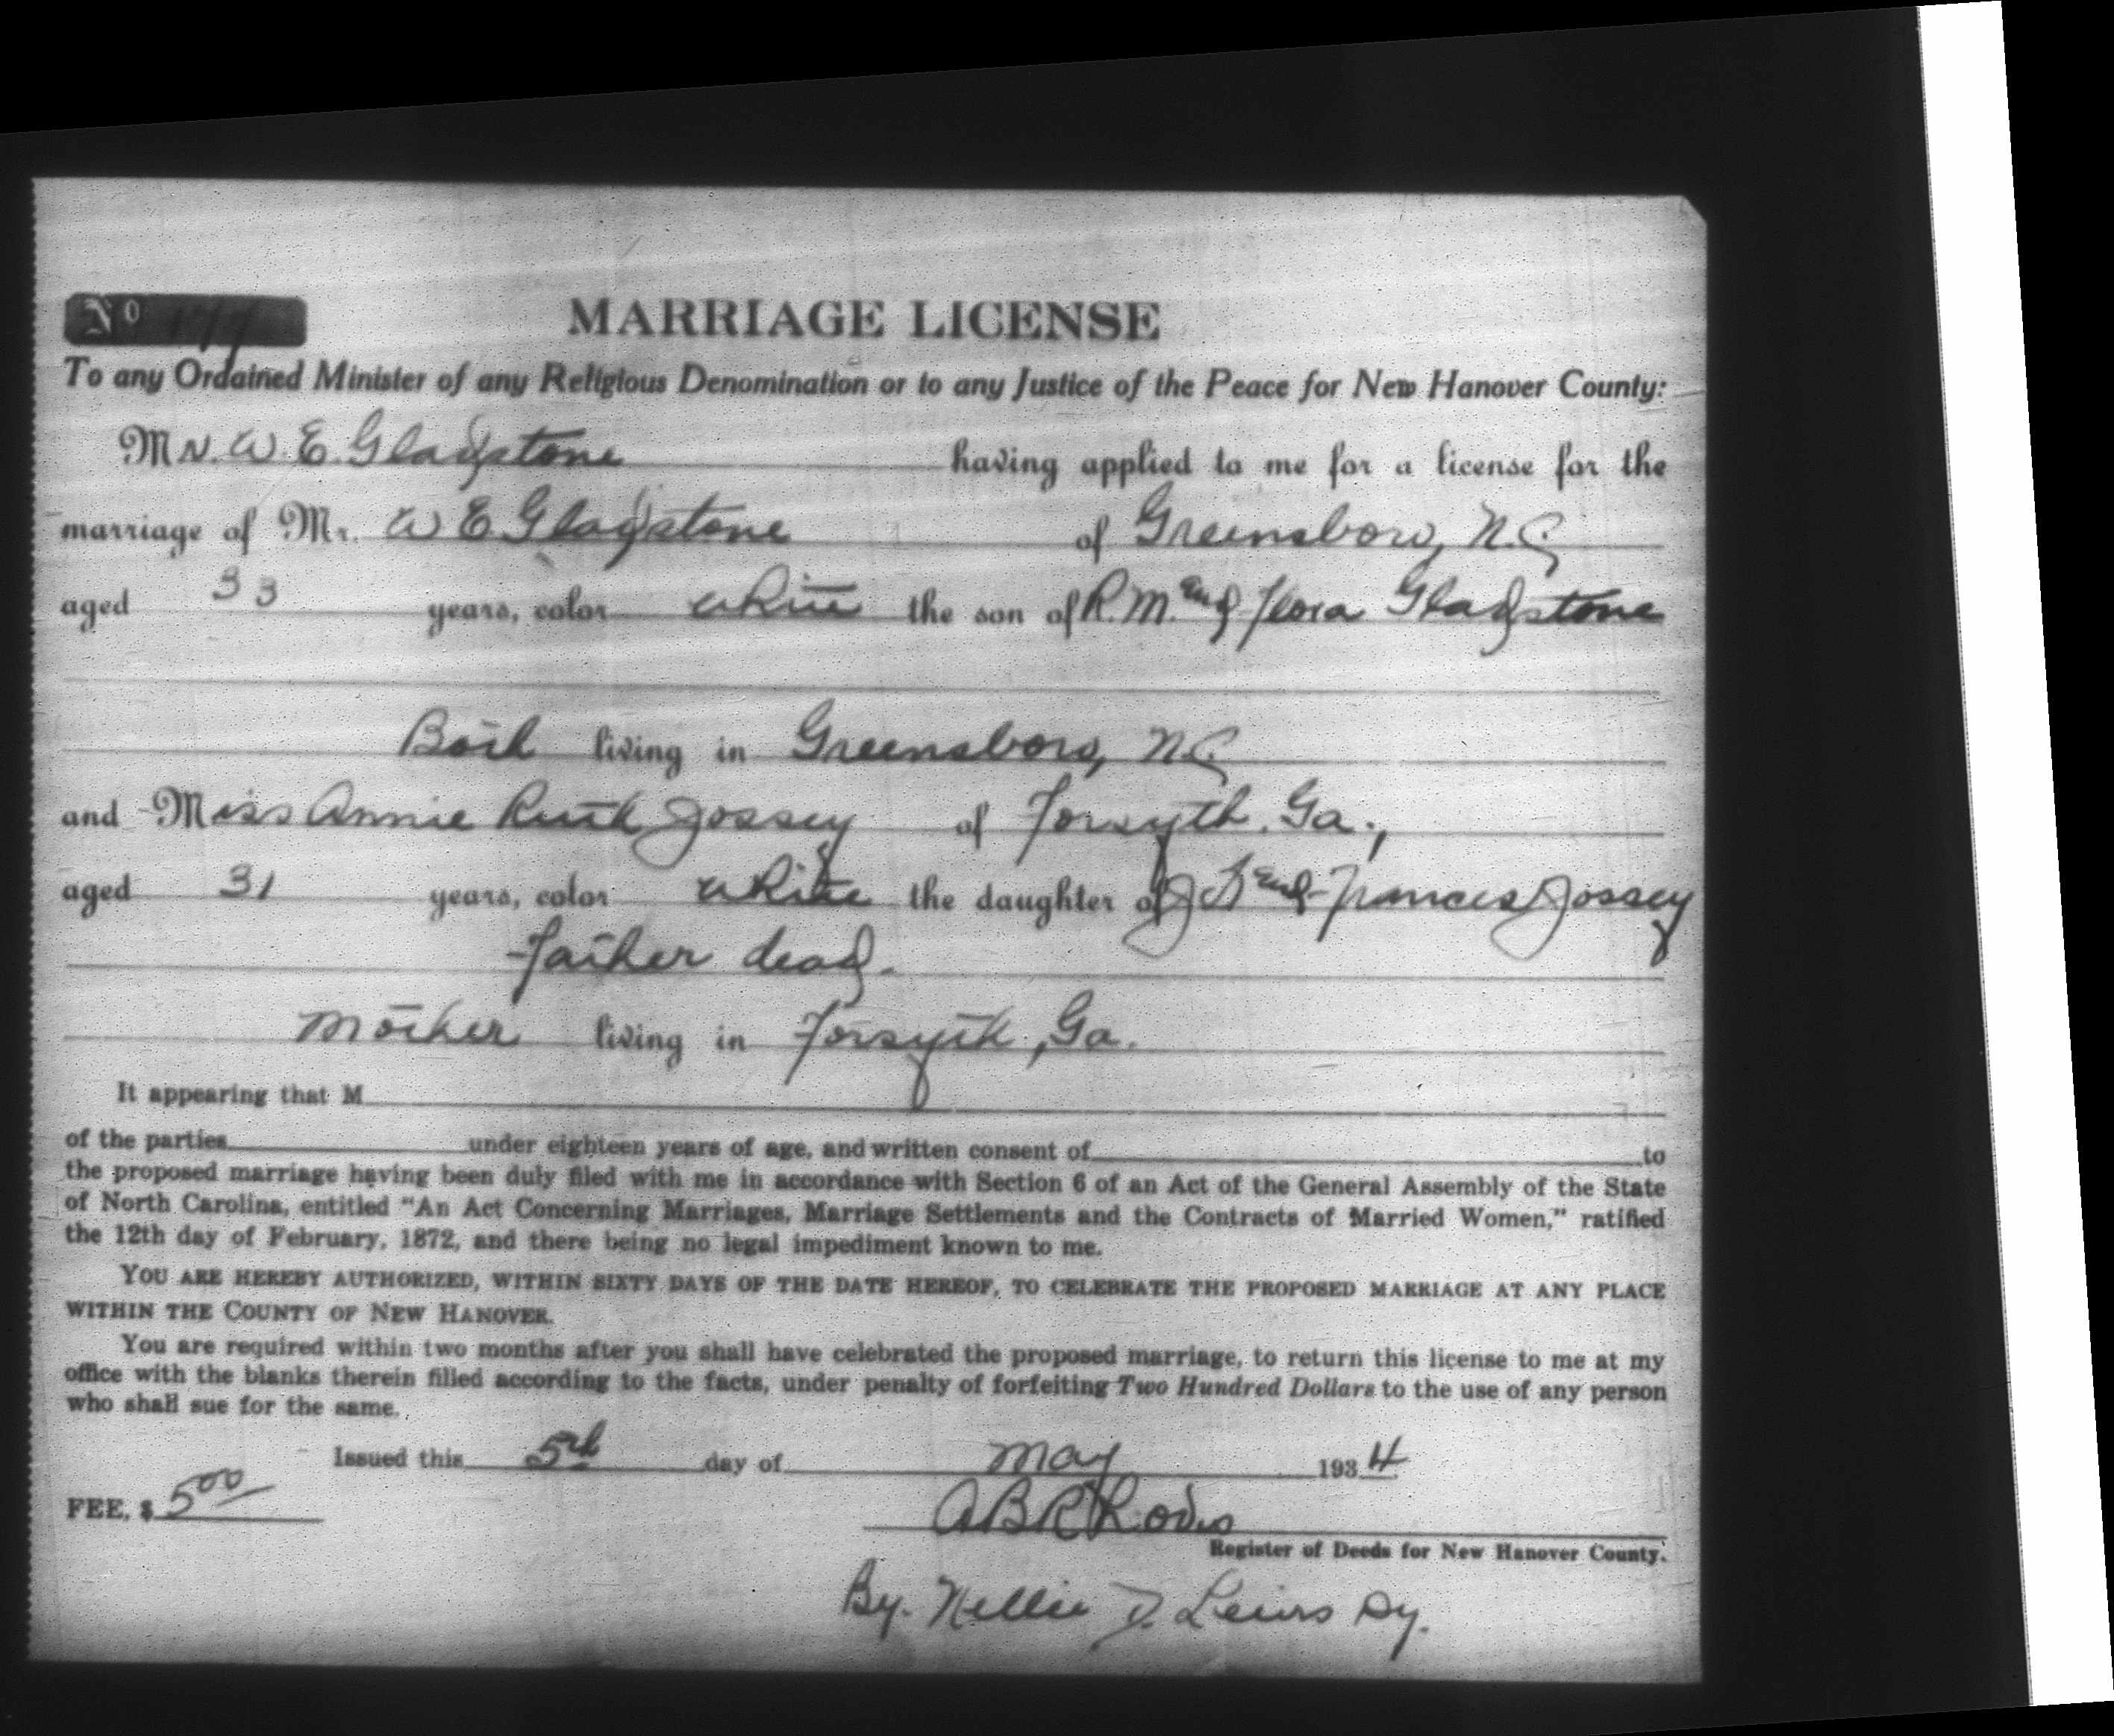 No 177
MARRIAGE LICENSE
To any Ordained Minister of any Religious Denomination or to any Justice of the Peace for New Hanover County:
Mr. W. E. Gladstone having applied to me for a license for the
marriage of Mr. W E Gladstone of Greensboro, N.C.
aged 33 years, color white the son of R. M. and Flora Gladstone
Both living in Greensboro, N.C.
and Miss Annie Ruth Jossey of Forsyth, Ga.,
aged 31 years, color white the daughter of J and Frances Jossey
Father dead.
Mother living in Forsyth, Ga.
It appearing that M
of the parties under eighteen years of age, and written consent of to
the proposed marriage having been duly filed with me in accordance with Section 6 of an Act of the General Assembly of the State
of North Carolina, entitled "An Act Concerning Marriages, Marriage Settlements and the Contracts of Married Women," ratified
the 12th day of February, 1872, and there being no legal impediment known to me.
YOU ARE HEREBY AUTHORIZED, WITHIN SIXTY DAYS OF THE DATE HEREOF, TO CELEBRATE THE PROPOSED MARRIAGE AT ANY PLACE
WITHIN THE COUNTY OF NEW HANOVER.
You are required within two months after you shall have celebrated the proposed marriage, to return this license to me at my
office with the blanks therein filled according to the facts, under penalty of forfeiting Two Hundred Dollars to the use of any person
who shall sue for the same.
Issued this 5th day of May 1934
FEE, $ 5 00
A B Rhodes
Register of Deeds for New Hanover County.
By. Nellie D. Lewis Dy.